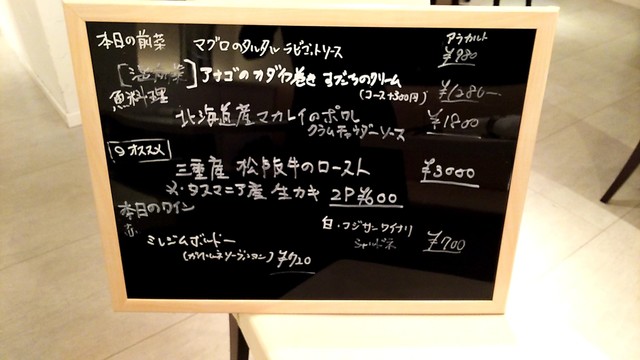 アラカルト
本日の前菜 マグロのタルタル ラビゴットソース ¥980
[温前菜] アナゴのカダイフ巻き すだちのクリーム ¥1280-
(コース+300円)
魚料理 北海道産マカレイのポワレ ¥1800
クラムチャウダーソース
オススメ
三重産 松阪牛のロースト ¥3000
タスマニア産 生カキ 2P ¥600
本日のワイン
白・フジサンワイナリー ¥700
赤
ミレジムボルドー
¥720